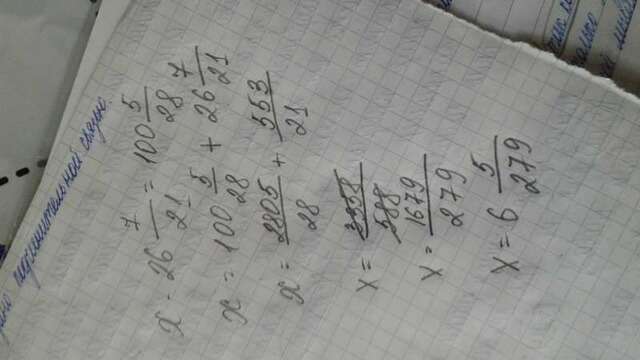 подчинительной связью.
x - 26 7/21 = 100 5/28
x = 100 5/28 + 26 7/21
x = 2805/28 + 553/21
x = 3358/588
x = 1679/279
x = 6 5/279